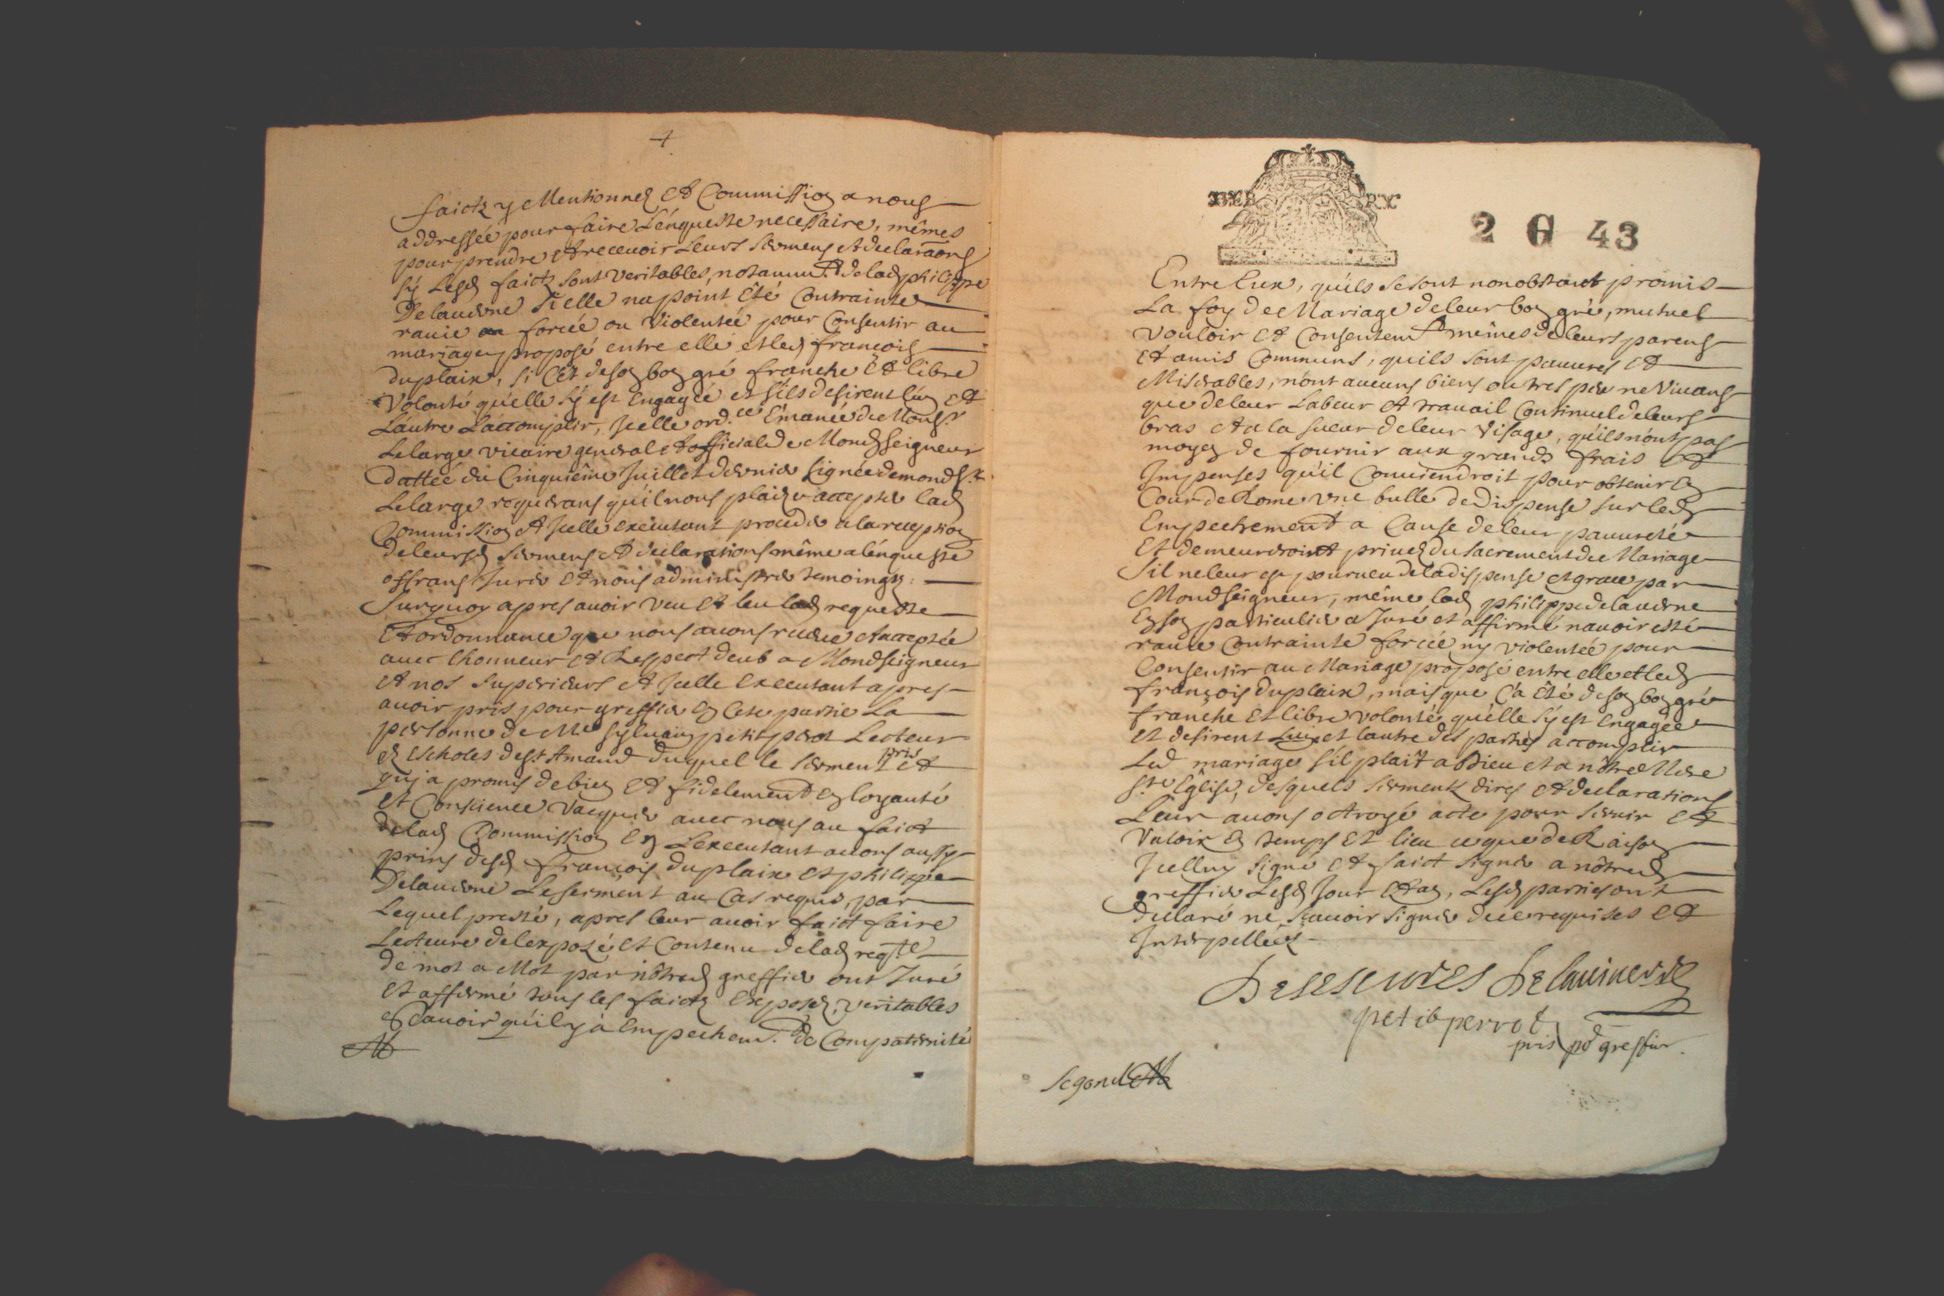 4
faictz y Mentionnez et Commission a nous
addressée pour faire L'énqueste necessaire, mêmes
pour prendre et recevoir Leurs sermens et declaraõns
sy Lesd faictz sont veritables, notamm.t de lad philippe
Delauerne si elle na point été Contrainte
rauie ou forcée ou Violentée pour Consentir au
mariage proposé entre elle et led françois
duplaix, si C'ét de son bon gré franche Et libre
Volonté qu'elle s'y est Engagée et s'ils desirent L'un et
L'autre L'accomplir, Icelle ord.ce Émanée de Mons.r
Lelarge vicaire general et official de Mondseigneur
dattée du Cinquiême Juillet dernier signée de mond s.r
Lelarge requerans qu'il nous plaise accepter lad
Commission et Icelle executant proceder a la reception
de leursd sermens et declarations même a l'énqueste
offrans Jurer et nous administrer temoings:
Surquoy apres auoir veu et leu lad requeste
et ordonnance que nous auons receue et acceptée
auec l'honneur et Respect deub a Mondseigneur
et nos superieurs et Icelle Executant apres
auoir pris pour greffier en Cete partie La
personne de Me syluain petitperot Lecteur
es Escholes de st Amand duquel le serment pris et
qui a promis de bien et fidelement en loyauté
et Conscience Vacquer auec nous au faict
de lad Commission En L'executant auons aussy
prins desd François duplaix et philippe
Delauerne Le serment au Cas requis, par
Lequel presté, apres leur auoir faict faire
Lecteure de l'exposé et Contenu de lad reqte
de mot a Mot par nôtred greffier ont Juré
et affirmé tous les faictz Exposez veritables
et sçauoir qu'il y à Empechem.t de Compaternité
BER RY
2 G 43
Entre Eux, qu'ils se sont nonobstant promis
La foy de Mariage de leur bon gré, mutuel
vouloir et Consentemt mêmes de leurs parens
et amis Communs, qu'ils sont pauures et
Miserables, n'ont aucuns biens ou tres peu ne Viuans
que de leur Labeur et trauail Continuel de leurs
bras et a la sueur de leur Visage, qu'ils n'ont pas
moyen de fournir aux grands frais et
Impenses qu'il Conuiendroit pour obtenir en
Cour de Rome vne bulle de Dispense sur led
Empechement a Cause de leur pauureté
Et demeureroint priuez du sacrement de Mariage
s'il ne leur est pourueu de la dispense et grace par
Mondseigneur, même lad philippe delauerne
En son particulier a Juré et affirmé n'auoir esté
rauie Contrainte forcée ny violentée pour
Consentir au Mariage proposé entre elle et led
françois duplaix, mais que Ç'a êté de son bon gré
franche Et libre volonté qu'elle s'y est Engagée
et desirent L'un et l'autre des parties accomplir
Led mariage s'il plait a Dieu et a nôtre Mere
s.te Eglise, desquels sermentz dires et declarations
Leur auons octroyé acte pour seruir et
Valoir en temps Et lieu ce que de Raison
Icelluy signé et faict signer a nôtred
greffier Lesd Jour et an, Lesd parties ont
declaré ne sçauoir signer de ce requises et
Interpellées
petit perrot
pris pr greffier
segond